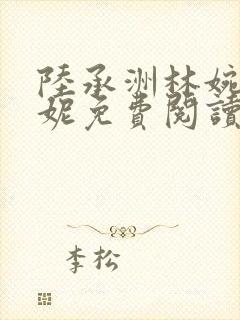 陸承洲林婉
妮免費閱讀
李松